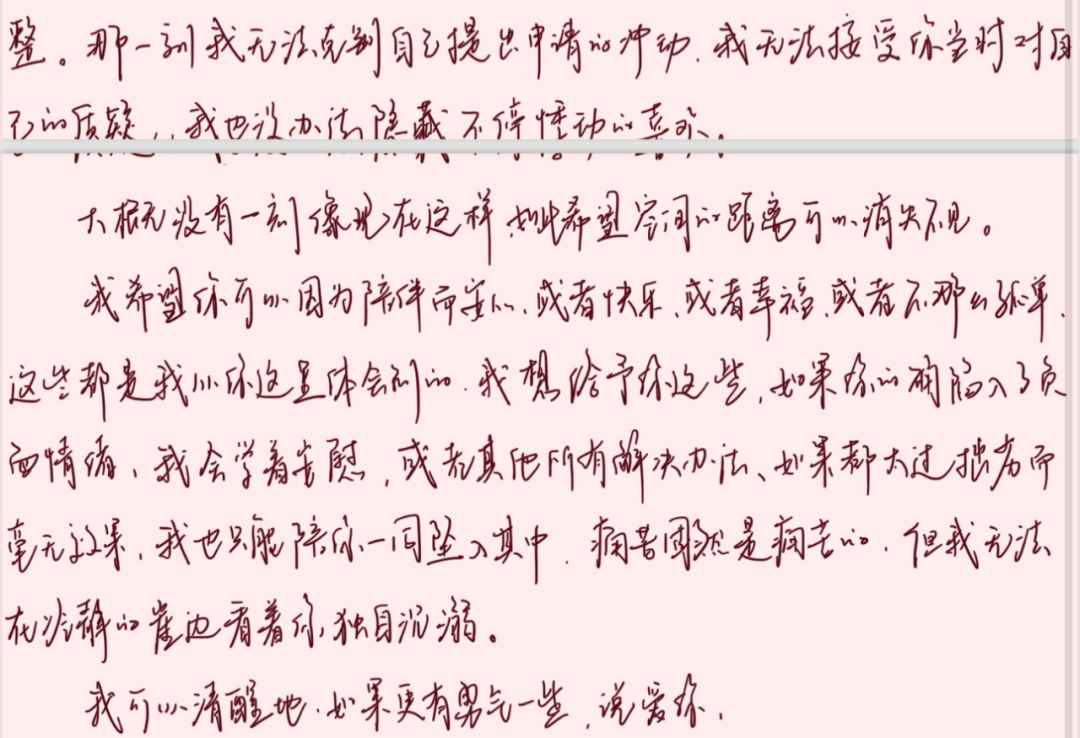 整。那一刻我无法克制自己提出申请的冲动，我无法接受你当时对自
己的质疑，我也没办法隐藏不停悸动的喜欢。
大概无没有一刻像现在这样，如此希望空间的距离可以消失不见。
我希望你可以因为陪伴而安心，或者快乐，或者幸福，或者不那么孤单，
这些都是我从你这里体会到的。我想给予你这些，如果你的确陷入了负
面情绪，我会学着安慰，或者其他所有解决办法、如果都太过拙劣而
毫无效果，我也只能陪你一同坠入其中，痛苦固然是痛苦的，但我无法
在冷静的崖边看着你独自沉溺。
我可以清醒地，如果更有勇气一些，说爱你，